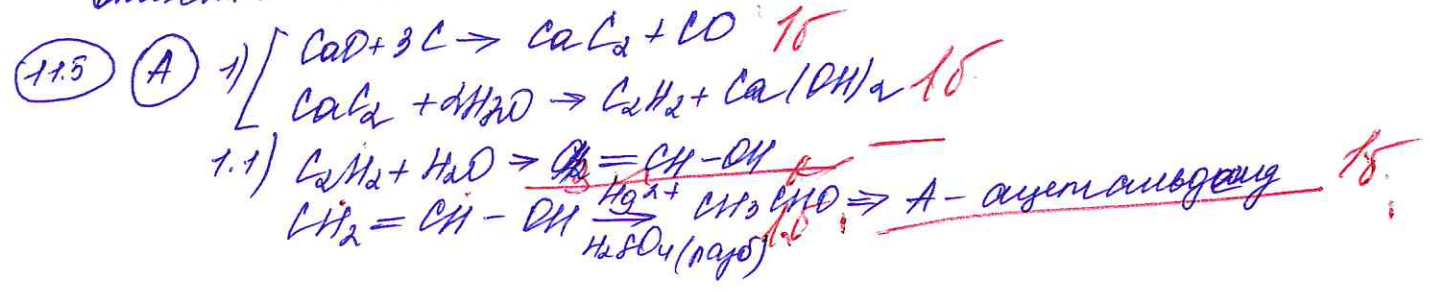 11.5 А 1) [ CaO + 3C → CaC₂ + CO 1б
CaC₂ + 2H₂O → C₂H₂ + Ca(OH)₂ 1б
1.1) C₂H₂ + H₂O → = CH – OH
CH₂ = CH – OH Hg²⁺ → H₂SO₄ (разб) CH₃CHO ⇒ А – ацетальдегид 1б
1б